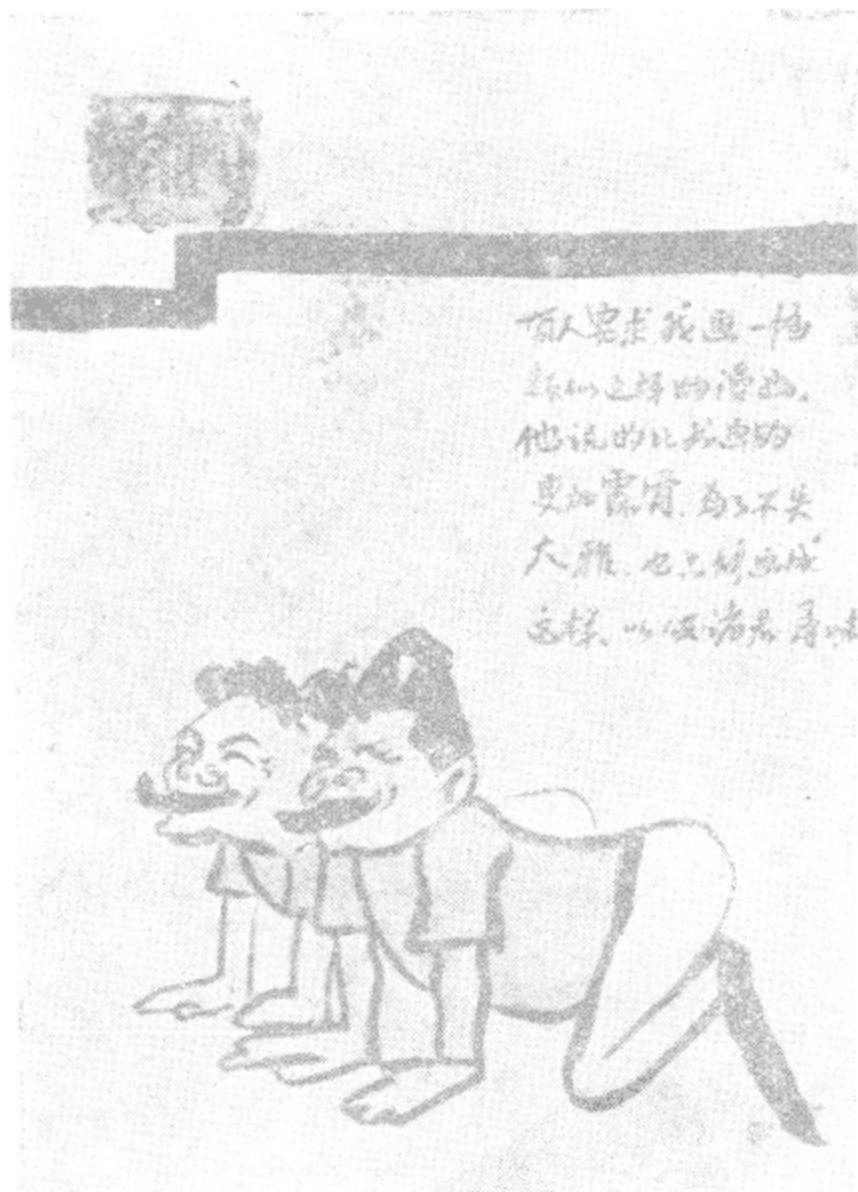 有人要求我画一幅
类似这样的漫画，
他说的比我画的
更加露骨，为了不失
大雅，也只能画成
这样，以便诸君寻味